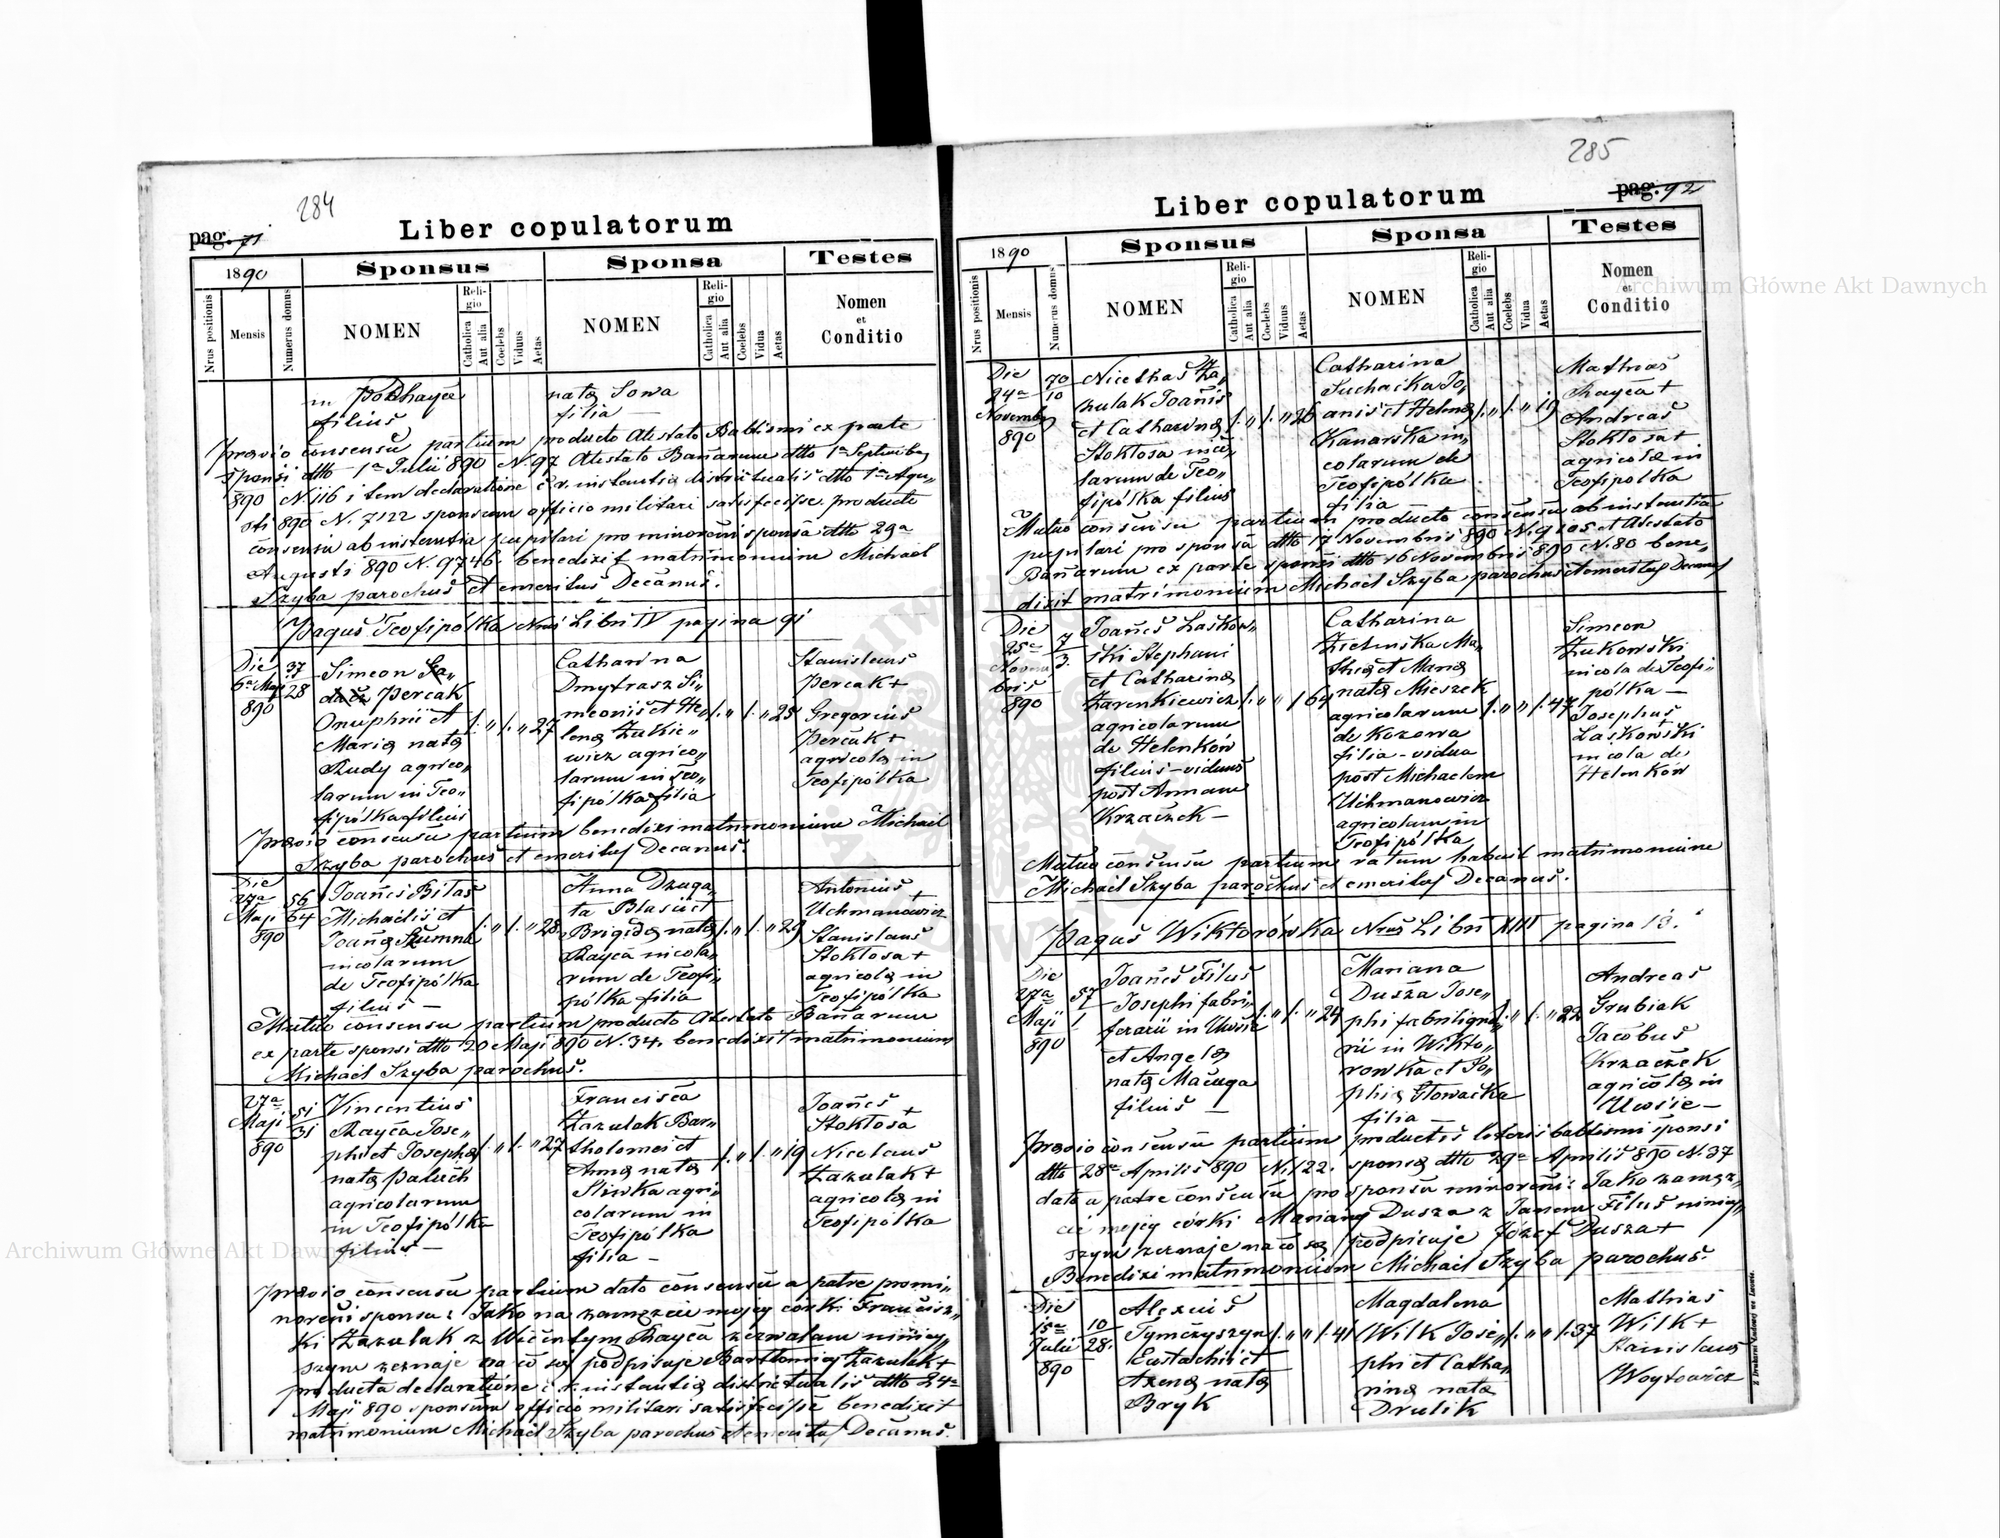 284
pag. 91
Liber copulatorum
1890
Sponsus
Sponsa
Testes
Nrus positionis
Mensis
Numerus domus
NOMEN
Religio
Catholica
Aut alia
Coelebs
Viduus
Aetas
NOMEN
Religio
Catholica
Aut alia
Coelebs
Vidua
Aetas
Nomen
et
Conditio
in Podhayce
filius
nata Sowa
filia —
Praevio consensu partium producto Atestato Babtismi ex parte
sponsi dtto 1a Julii 890 N. 97 Atestato Bañarum dtto 1a Septembris
890 N 116 item declaratione c. r. instantia districtualis dtto 1a Augu„
sti 890 N. 7122 sponsum officio militari satisfecisse. producto
consensu ab instantia pupilari pro minoreñi sponsa dtto 29a
Augusti 890 N. 9746. benedixit matrimonium Michael
Szyba parochus et emeritus Decanus.
Pagus Teofipólka Nrus Libri IV pagina 91
Die
6a Maji
890
37
28
Simeon
Percak
Onuphrii et
Maria nata
Rudy agrico„
larum in Teo„
fipólka filius
1. „ 1. „ 27
Catharina
Dmytrasz Si„
meonis et He„
lena Zukie„
wicz agrico„
larum in Teo„
fipólka filia
1. „ 1. „ 25
Stanislaus
Percak +
Gregorius
Percak +
agricola in
Teofipólka
Praevio consensu partium benedixi matrimonium Michael
Szyba parochus et emeritus Decanus.
Die
27a
Maji
890
56
64
Joañes Bilas
Michaelis et
Joaña Szumna
incolarum
de Teofipólka
filius —
1. „ 1. „ 28
Anna Dzuga„
ta Blasii et
Brigida nata
Rayca incola„
rum de Teofi„
pólka filia
1. „ 1. „ 29
Antonius +
Uchmanowicz
Stanislaus
Stoktosa +
agricola in
Teofipólka
Mutuo consensu partium producto Atestato Bañarum
ex parte sponsi dtto 20 Maji 890 N. 34. benedixit matrimonium
Michael Szyba parochus.
27a
Maji
890
51
31
Vincentius
Rayca Jose„
phi et Josepha
nata Paluch
agricolarum
in Teofipólka
filius —
1. „ 1. „ 27
Francisca
Zazulak Bar„
tholomei et
Anna nata
Sliwka agri„
colarum in
Teofipólka
filia —
1. „ 1. „ 19
Joañes +
Stoktosa
Nicolaus
Zazulak +
agricola in
Teofipólka
Praevio consensu partium dato consensu a patre pro mi„
noreñi sponsa: Jako na zamęzcie mojej corki Francisz„
ki Zazulak z Wicentym Rayca zezwalam niniej„
szym zeznaje na co sę podpisuje Bartłomiej Zazulak +
producta declaratione c. r. instantia districtualis dtto 24a
Maji 890 sponsum officio militari satisfecisse benedixit
matrimonium Michael Szyba parochus et emeritus Decanus.
285
pag. 92
Liber copulatorum
1890
Sponsus
Sponsa
Testes
Nrus positionis
Mensis
Numerus domus
NOMEN
Religio
Catholica
Aut alia
Coelebs
Viduus
Aetas
NOMEN
Religio
Catholica
Aut alia
Coelebs
Vidua
Aetas
Nomen
et
Conditio
Die
24a
Novembris
890
70
10
Nicethas Za„
zulak Joañis
et Catharina
Stoktosa inco„
larum de Teo„
fipólka filius
1. „ 1. „ 26
Catharina
Suchacka Jo„
anis et Helena
Kanarska in„
colarum de
Teofipólka
filia
1. „ 1. „ 19
Mathias
Rayca +
Andreas
Stoktosa +
agricola in
Teofipolka
Mutuo consensu partium producto consensu ab instantia
pupilari pro sponsa dtto 17 Novembris 890 N. 9105 et Atestato
Bañarum ex parte sponsi dtto 16 Novembris 890 N. 80 bene„
dixit matrimonium Michael Szyba parochus et emeritus Decanus
Die
25a
Novem
bris
890
7
3.
Joañes Laskow„
ski Stephani
et Catharina
Zarenkiewicz
agricolarum
de Helenków
filius – viduus
post Annam
Krzaczek —
1. „ „ 1. 64
Catharina
Zielinska Ma„
thia et Maria
nata Mieszek
agricolarum
de Kozowa
filia – vidua
post Michaelem
Uchmanowicz
agricolam in
Teofipólka
1. „ „ 1. 47
Simeon
Zukowski
incola de Teofi„
pólka —
Josephus
Laskowski
incola de
Helenków
Mutuo consensu partium ratum habuit matrimonium
Michael Szyba parochus et emeritus Decanus.
Pagus Wiktorówka Nrus Libri XIII pagina 13.
Die
27a
Maji
890
57
1
Joañes Filus
Josephi fabri„
ferarii in Uwsie
et Angela
nata Macuga
filius —
1. „ 1. „ 24
Mariana
Dusza Jose„
phi fabriligna„
rii in Wikto„
rowka et So„
phia Głowacka
filia —
1. „ 1. „ 22
Andreas
Grubiak
Jacobus
Krzaczek
agricola in
Uwsie —
Praevio consensu partium productis literis babtismi sponsi
dtto 28a Aprilis 890 N. 122. sponsa dtto 29a Aprilis 890 N. 37
dato a patre consensu pro sponsa minoreñi: Jako zamęz„
cie mojej córki Marianny Dusza z Janem Filus niniej„
szym zeznaje na co sę podpisuje Józef Dusza +
Benedixi matrimonium Michael Szyba parochus.
Die
15a
Julii
890
10
28.
Alexius
Tymczyszyn
Eustachii et
Axena nata
Bryk
1. „ „ 1. 41
Magdalena
Wilk Jose„
phi et Catha„
rina nata
Drulik
1. „ „ 1. 37
Mathias
Wilk +
Stanislaus
Woytowicz
Z Drukarni Ludowej we Lwowie.
Archiwum Główne Akt Dawnych
Archiwum Główne Akt Dawnych